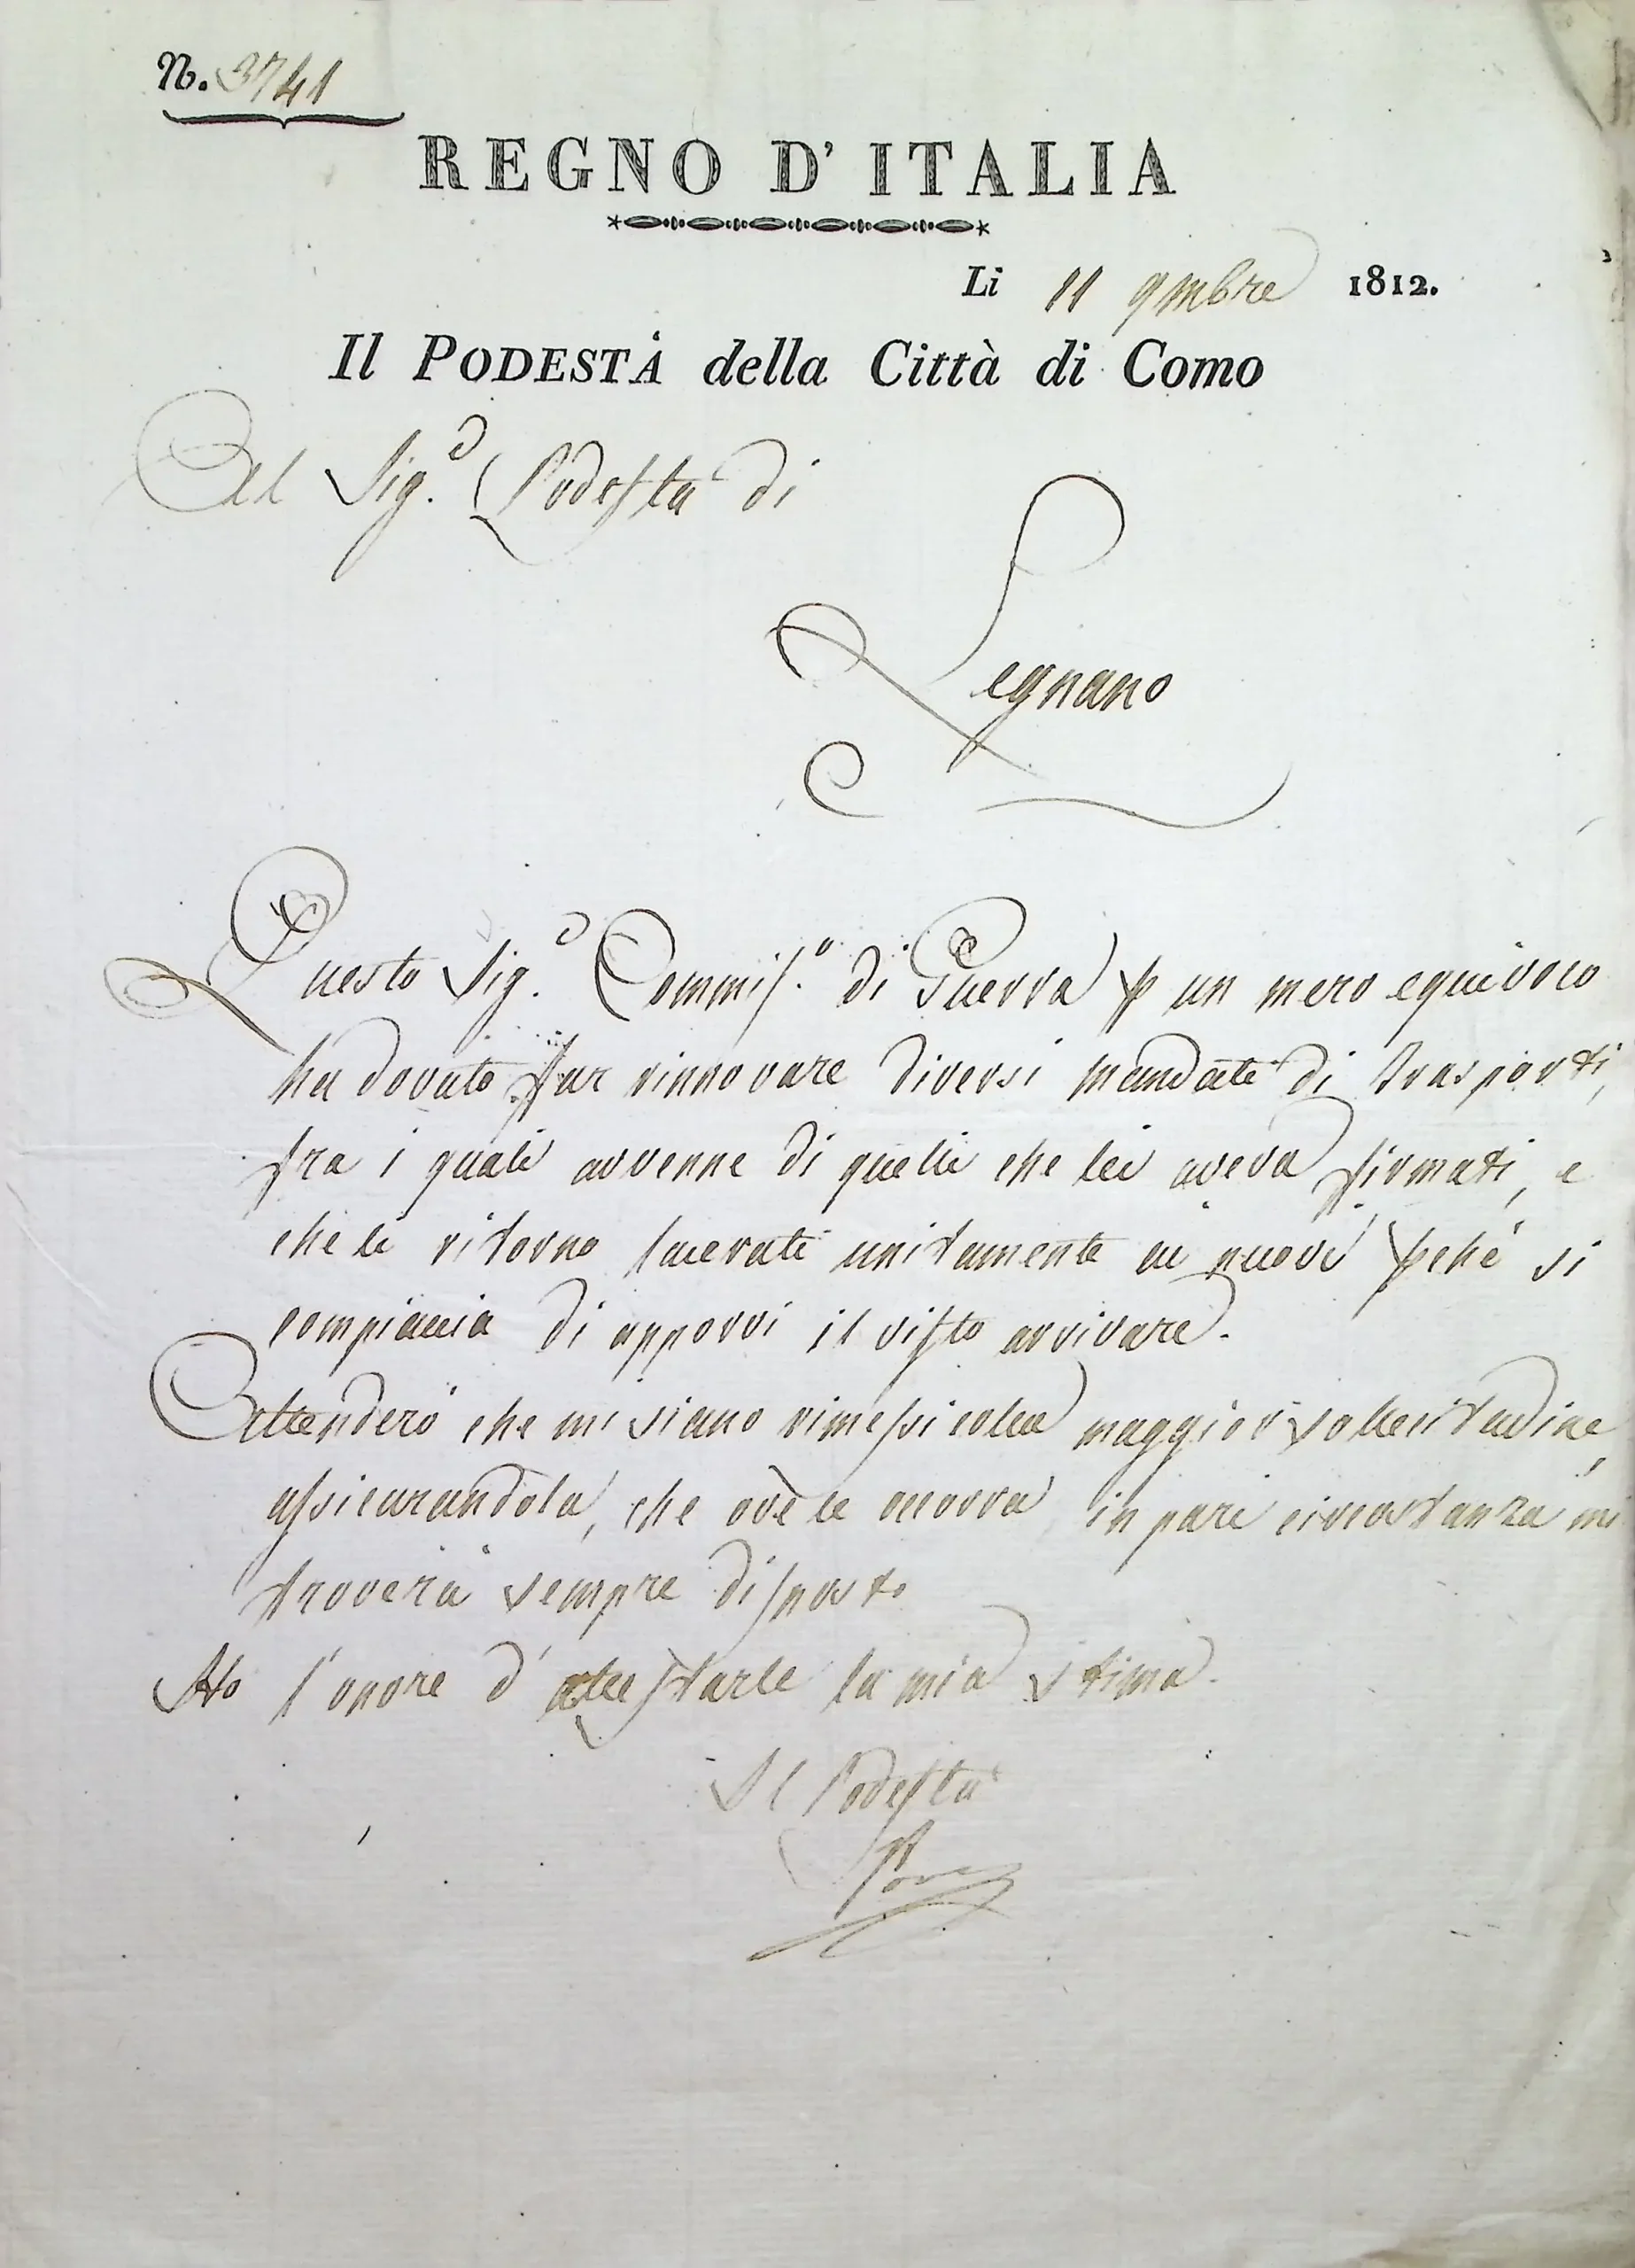 N. 3741
REGNO D' ITALIA
Li 11 9mbre 1812.
Il PODESTÀ della Città di Como
Al Sig.r Podestà di
Legnano
Questo Sig.r Commis.o di Guerra p un mero equivoco
ha dovuto far rinnovare diversi mandati di trasporti,
fra i quali avvenne di quelli che lei aveva firmati, e
che le ritorno lacerati unitamente ai nuovi pchè si
compiaccia di apporvi il visto arrivare.
Attenderò che mi siano rimessi colla maggior sollecitudine,
assicurandola, che ove le occorra in pari circostanza mi
troverà sempre disposto
Ho l'onore d'attestarle la mia stima.
Il Podestà